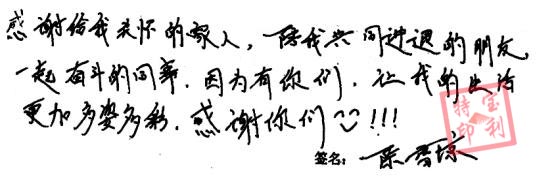 感谢给我关怀的家人，陪我共同进退的朋友，
一起奋斗的同事，因为有你们，让我的生活
更加多姿多彩，感谢你们!!!
签名：
宝利
特印